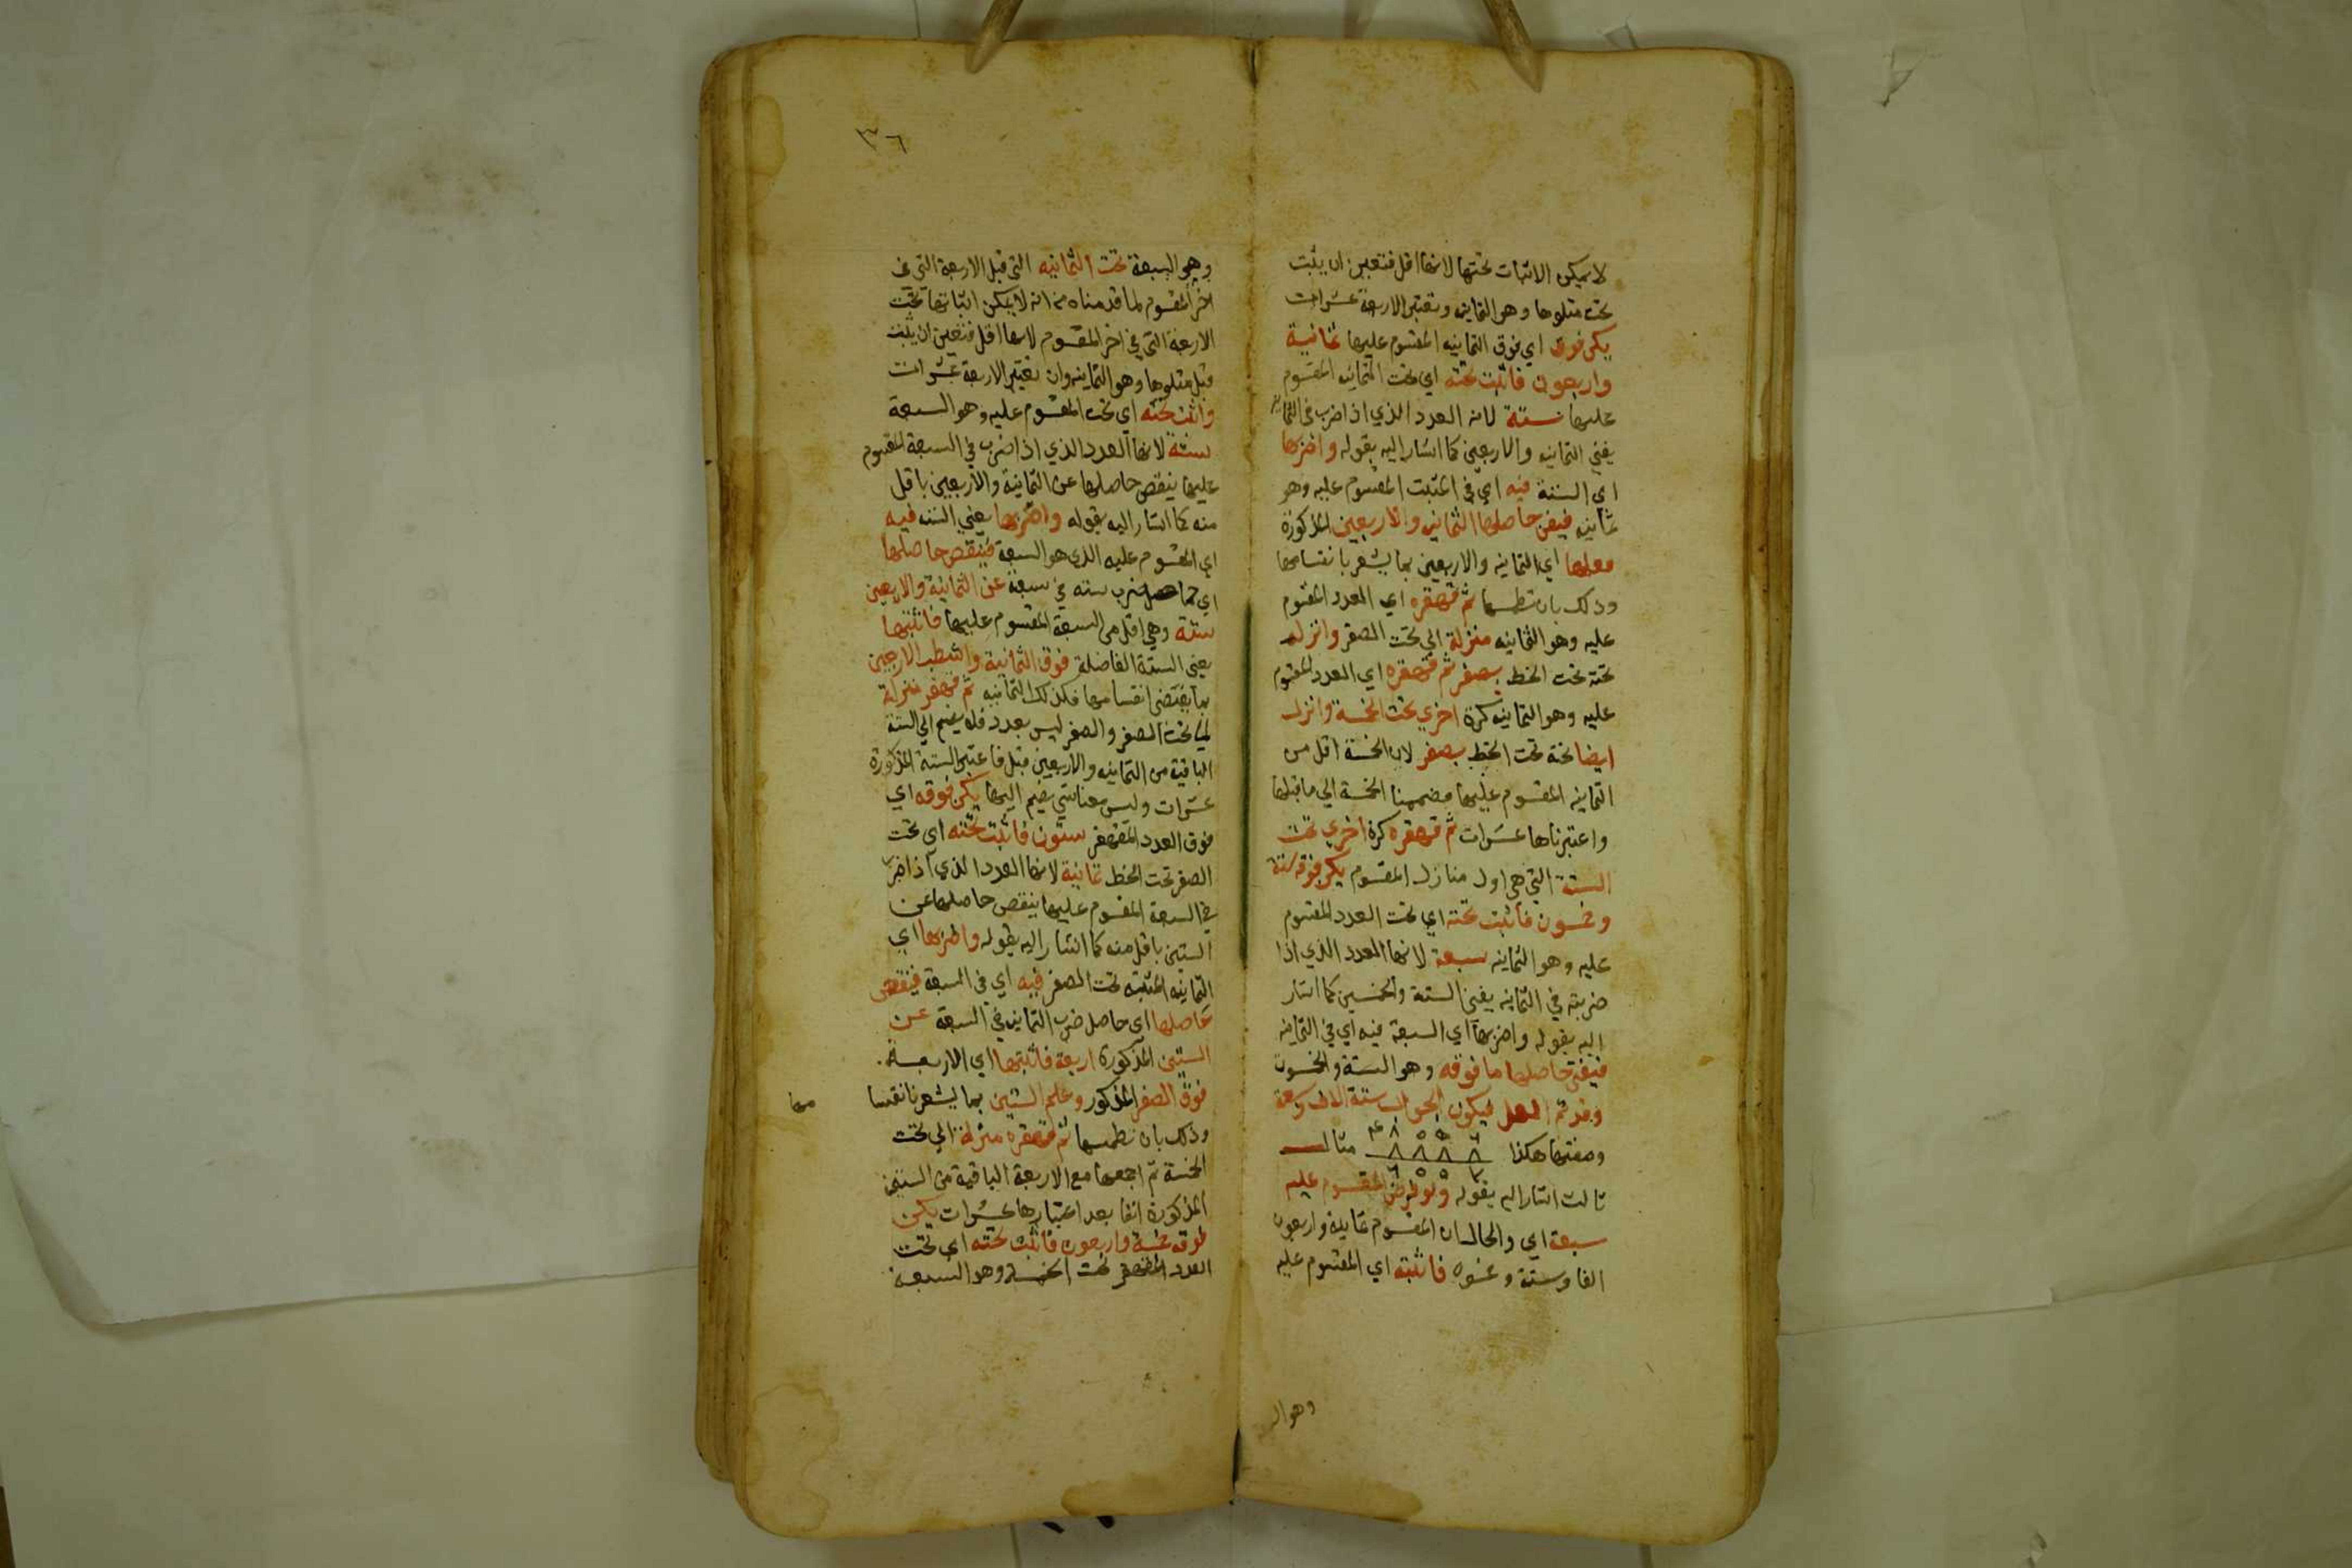 لا يمكن الاثبات تحتها لانها اقل فتعين ان يثبت
تحت متلوها وهو الثمانيه وتعتبر الاربعة عشرات
يكن فوق اي فوق الثمانيه المقسوم عليها ثمانية
واربعون فاثبت تحته اي تحت الثمانيه المقسوم
عليها ستة لانه العدد الذي اذا ضرب في الثمانيه
يفني الثمانيه والاربعين كما اشار اليه بقوله واضربها
اي الستة فيه اي في المثبت المقسوم عليه وهو
ثمانيه فيفن حاصلها الثمانيه والاربعين المذكورة
معلما اي الثمانيه والاربعين بما يشعر بانقسامها
وذلك بان تطمسها ثم قهقره اي العدد المقسوم
عليه وهو الثمانيه منزلة الي تحت الصفر وانزله
تحته تحت الخط بصفر ثم قهقره اي العدد المقسوم
عليه وهو الثمانيه كرة اخري تحت الخمسة وانزل
ايضا تحته تحت الخط بصفر لان الخمسة اقل من
الثمانيه المقسوم عليها فضممنا الخمسة الي ما قبلها
واعتبرناها عشرات ثم قهقره كرة اخري تحت
الستة التي هي اول منازل المقسوم يكن فوقه ستة
وخمسون فاثبت تحته اي تحت العدد المقسوم
عليه وهو الثمانيه سبعة لانها العدد الذي اذا
ضربته في الثمانيه يفني الستة والخمسين كما اشار
اليه بقوله واضربها اي السبعة فيه اي في الثمانيه
فيفني حاصلها ما فوقه وهو الستة والخمسون
وقد تم العمل فيكون الجواب ستة الاف وسبعة
وصفتها هكذا ٤٨ ٥ ٥ ٦ ٨ ٨ ٨ ٨ ٦ ٥ ٥ ٧ مثال
ثالث اشار اليه بقوله ولو فرض المقسوم عليه
سبعة اي والحال ان المقسوم ثمانية واربعون
الفا وستة وخمسون فاثبته اي المقسوم عليه
وهو الـ
٣٦
وهو السبعة تحت الثمانيه التي قبل الاربعة التي في
اخر المقسوم لما قدمناه من انه لا يمكن اثباتها تحت
الاربعة التي في اخر المقسوم لانها اقل فتعين ان يثبت
قبل متلوها وهو الثمانيه وان تعتبر الاربعة عشرات
واثبت تحته اي تحت المقسوم عليه وهو السبعة
ستة لانها العدد الذي اذا ضرب في السبعة المقسوم
عليها ينقص حاصلها عن الثمانية والاربعين باقل
منه كما اشار اليه بقوله واضربها يعني الستة فيه
اي المقسوم عليه الذي هو السبعة فينقص حاصلها
اي حاصل ضرب ستة في سبعة عن الثمانية والاربعين
ستة وهي اقل من السبعة المقسوم عليها فاثبتها
يعني الستة الفاضلة فوق الثمانية واشطب الاربعين
بما يقتضي انقسامها فكذلك الثمانيه ثم قهقر منزلة
لما تحت الصفر والصفر ليس بعدد فلا يضم الي الستة
الباقية من الثمانيه والاربعين قبل فاعتبر الستة المذكورة
عشرات وليس معنا شي يضم اليها يكن فوقه اي
فوق العدد المقهقر ستون فاثبت تحته اي تحت
الصفر تحت الخط ثمانية لانها العدد الذي اذا ضرب
في السبعة المقسوم عليها ينقص حاصلها عن
الستين باقل منه كما اشار اليه بقوله واضربها اي
الثمانيه المثبته تحت الصفر فيه اي في السبعة فينقص
حاصلها اي حاصل ضرب الثمانيه في السبعة عن
الستين المذكورة اربعة فاثبتها اي الاربعة
فوق الصفر المذكور وعلم الستين بما يشعر بانقسا
مها
وذلك بان تطمسها ثم قهقره منزلة الي تحت
الخمسة ثم اجمعها مع الاربعة الباقية من الستين
المذكورة انفا بعد اعتبارها عشرات يكن
فوقه خمسة واربعون فاثبت تحته اي تحت
العدد المقهقر تحت الخمسة وهو السبعة